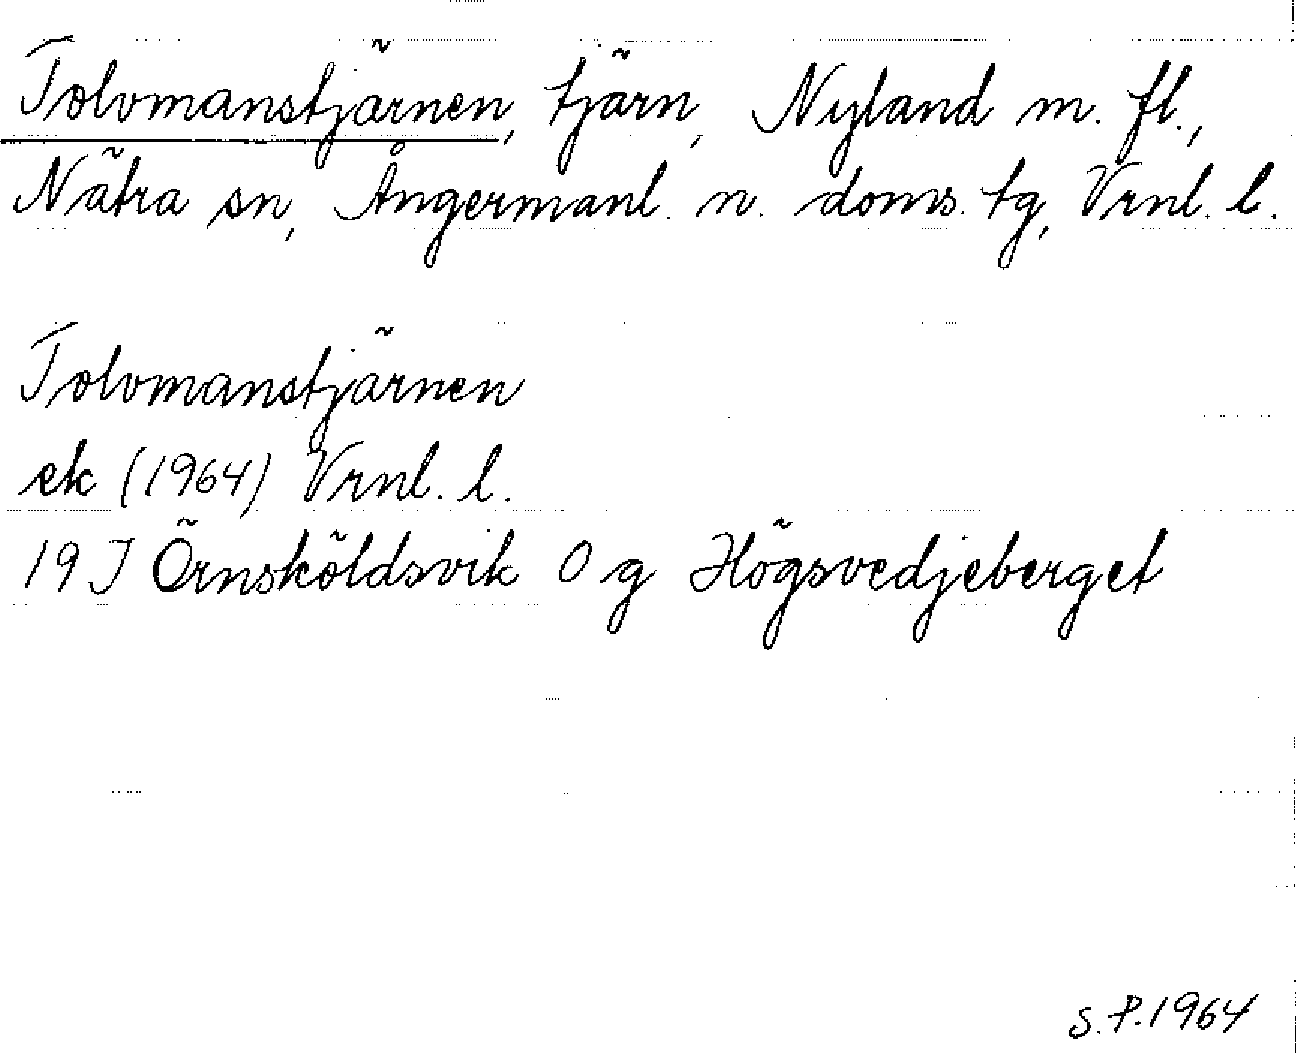 Tolvmanstjärnen, tjärn, Nyland m. fl.,
Nätra sn, Ångermanl. n. doms. tg, Vrnl. l.
Tolvmanstjärnen
ek (1964) Vrnl. l.
19 J Örnsköldsvik 0 g Högsvedjeberget
S.P. 1964